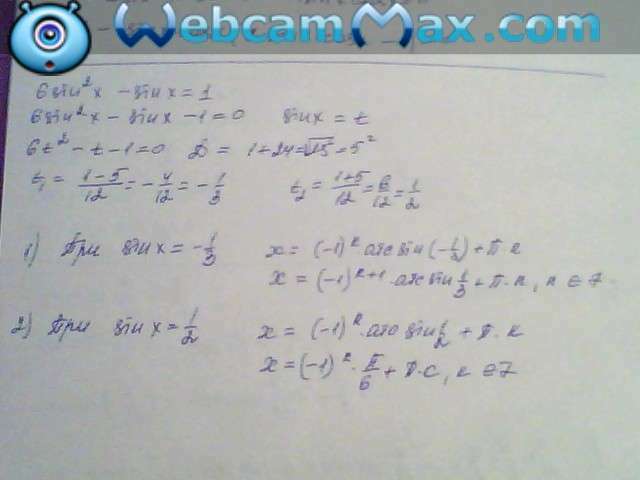 WebcamMax.com
6sin²x - sinx = 1
6sin²x - sinx - 1 = 0 sinx = t
6t² - t - 1 = 0 D = 1 + 24 = √25 = 5²
t₁ = (1-5)/12 = -4/12 = -1/3 t₂ = (1+5)/12 = 6/12 = 1/2
1) При sinx = -1/3 x = (-1)ᵏ arcsin(-1/3) + π·k
x = (-1)ᵏ⁺¹·arcsin 1/3 + π·k, k ∈ Z
2) При sinx = 1/2 x = (-1)ᵏ·arcsin 1/2 + π·k
x = (-1)ᵏ·π/6 + π·k, k ∈ Z